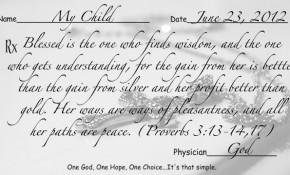 Name My Child Date June 23, 2012
Rx Blessed is the one who finds wisdom, and the one
who gets understanding, for the gain from her is better
than the gain from silver and her profit better than
gold. Her ways are ways of pleasantness, and all
her paths are peace. (Proverbs 3:13-14,17)
Physician God
One God, One Hope, One Choice...It's that simple.